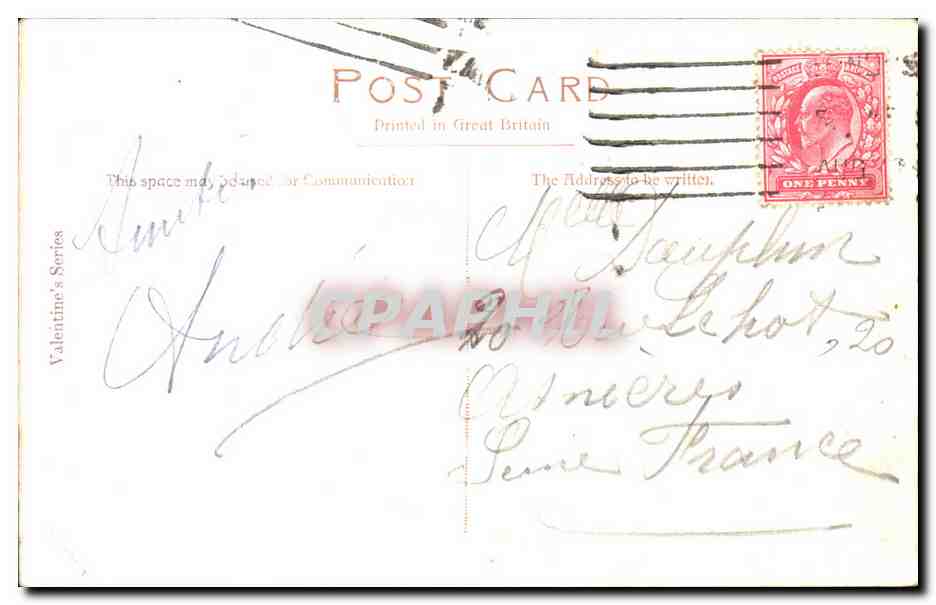 POST CARD
Printed in Great Britain
This space may be used for Communication
The Address to be written.
Valentine's Series
POSTAGE REVENUE
ONE PENNY
Amitié
André
Melle Dauphin
20 Rue 20
Asnières
Seine France
CPAPHIL